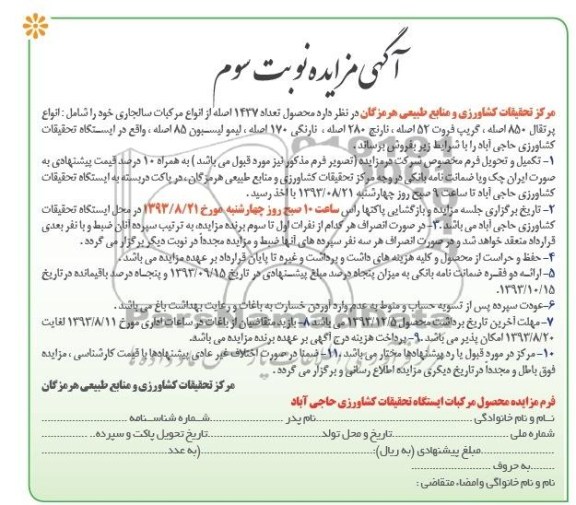 آگهی مزایده نوبت سوم
مرکز تحقیقات کشاورزی و منابع طبیعی هرمزگان در نظر دارد محصول تعداد ۱۴۳۷ اصله از انواع مرکبات سالجاری خود را شامل : انواع
پرتقال ۸۵۰ اصله ، گریپ فروت ۵۲ اصله ، نارنج ۲۸۰ اصله ، نارنگی ۱۷۰ اصله ، لیمو لیسبون ۸۵ اصله ، واقع در ایستگاه تحقیقات
کشاورزی حاجی آباد را با شرایط زیر بفروش برساند.
۱- تکمیل و تحویل فرم مخصوص شرکت در مزایده (تصویر فرم مذکور نیز مورد قبول می باشد ) به همراه ۱۰ درصد قیمت پیشنهادی به
صورت ایران چک و یا ضمانت نامه بانکی در وجه مرکز تحقیقات کشاورزی و منابع طبیعی هرمزگان ، در پاکت دربسته به ایستگاه تحقیقات
کشاورزی حاجی آباد تا ساعت ۹ صبح روز چهارشنبه ۱۳۹۳/۰۸/۲۱ با اخذ رسید .
۲- تاریخ برگزاری جلسه مزایده و بازگشایی پاکتها راس ساعت ۱۰ صبح روز چهارشنبه مورخ ۱۳۹۳/۸/۲۱ در محل ایستگاه تحقیقات
کشاورزی حاجی آباد می باشد. ۳- در صورت انصراف هر کدام از نفرات اول تا سوم برنده مزایده، به ترتیب سپرده آنان ضبط و با نفر بعدی
قرارداد منعقد خواهد شد و در صورت انصراف هر سه نفر سپرده های آنها ضبط و مزایده مجدداً در نوبت دیگر برگزار می گردد .
۴- حفظ و حراست از محصول و کلیه هزینه های داشت و برداشت و غیره تا پایان قرارداد بر عهده مزایده می باشد.
۵- ارائه دو فقره ضمانت نامه بانکی به میزان پنجاه درصد مبلغ پیشنهادی در تاریخ ۱۳۹۳/۰۹/۱۵ و پنجاه درصد باقیمانده در تاریخ
۱۳۹۳/۱۰/۱۵.
۶- عودت سپرده پس از تسویه حساب و منوط به عدم وارد آوردن خسارت به باغات و رعایت بهداشت باغ می باشد .
۷- مهلت آخرین تاریخ برداشت محصول ۱۳۹۳/۱۲/۵ می باشد ۸- بازدید متقاضیان از باغات در ساعات اداری مورخ ۱۳۹۳/۸/۱۱ لغایت
۱۳۹۳/۸/۲۰ امکان پذیر می باشد .۹- پرداخت هزینه درج آگهی بر عهده برنده مزایده می باشد.
۱۰- مرکز در مورد قبول یا رد پیشنهادها مختار می باشد .۱۱- ضمنا در صورت اختلاف غیر عادی پیشنهادها با قیمت کارشناسی ، مزایده
فوق باطل و مجدداً در تاریخ دیگری مزایده اطلاع رسانی و برگزار می گردد .
مرکز تحقیقات کشاورزی و منابع طبیعی هرمزگان
فرم مزایده محصول مرکبات ایستگاه تحقیقات کشاورزی حاجی آباد
نام و نام خانوادگی ..............................نام پدر ..............................شماره شناسنامه ..............................
شماره ملی ..............................تاریخ و محل تولد..............................تاریخ تحویل پاکت و سپرده..............................
..............................مبلغ پیشنهادی (به ریال): ..............................(به عدد ..............................
........به حروف ..............................
نام و نام خانوادگی وامضاء متقاضی :